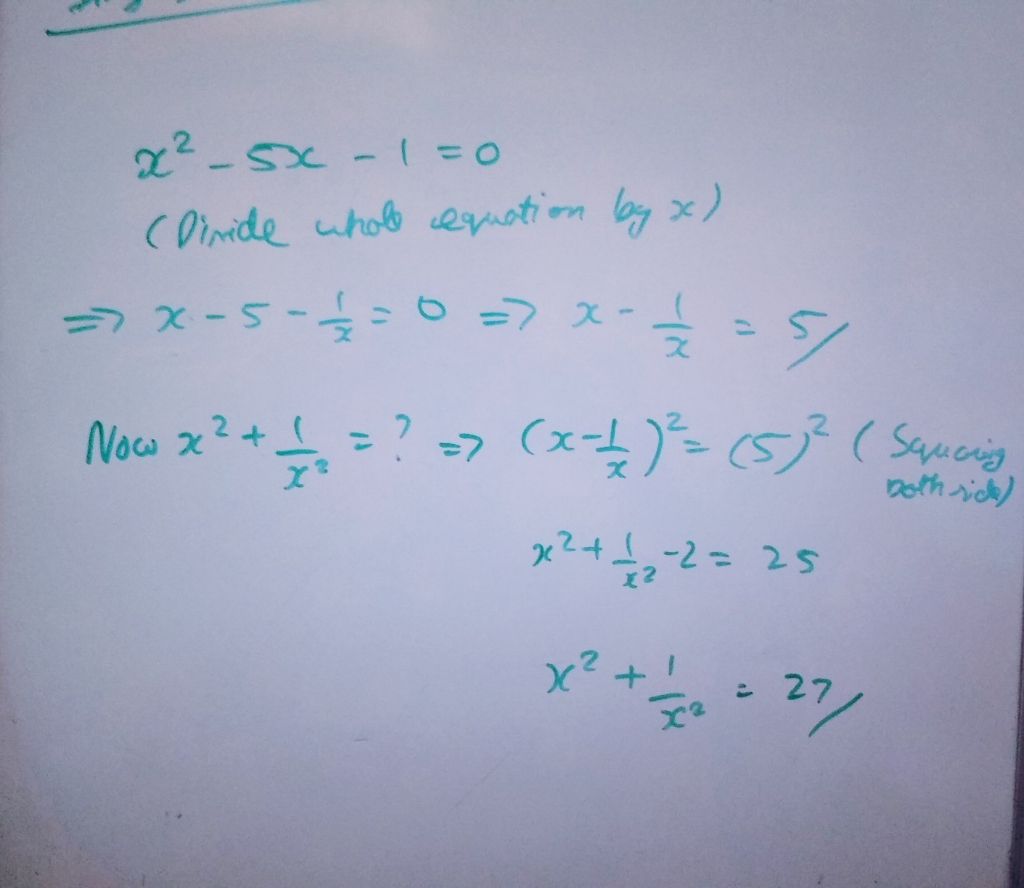 x² - 5x - 1 = 0
(Divide whole equation by x)
=> x - 5 - 1/x = 0 => x - 1/x = 5/
Now x² + 1/x² = ? => (x - 1/x)² = (5)² (Squaring
both side)
x² + 1/x² - 2 = 25
x² + 1/x² = 27/